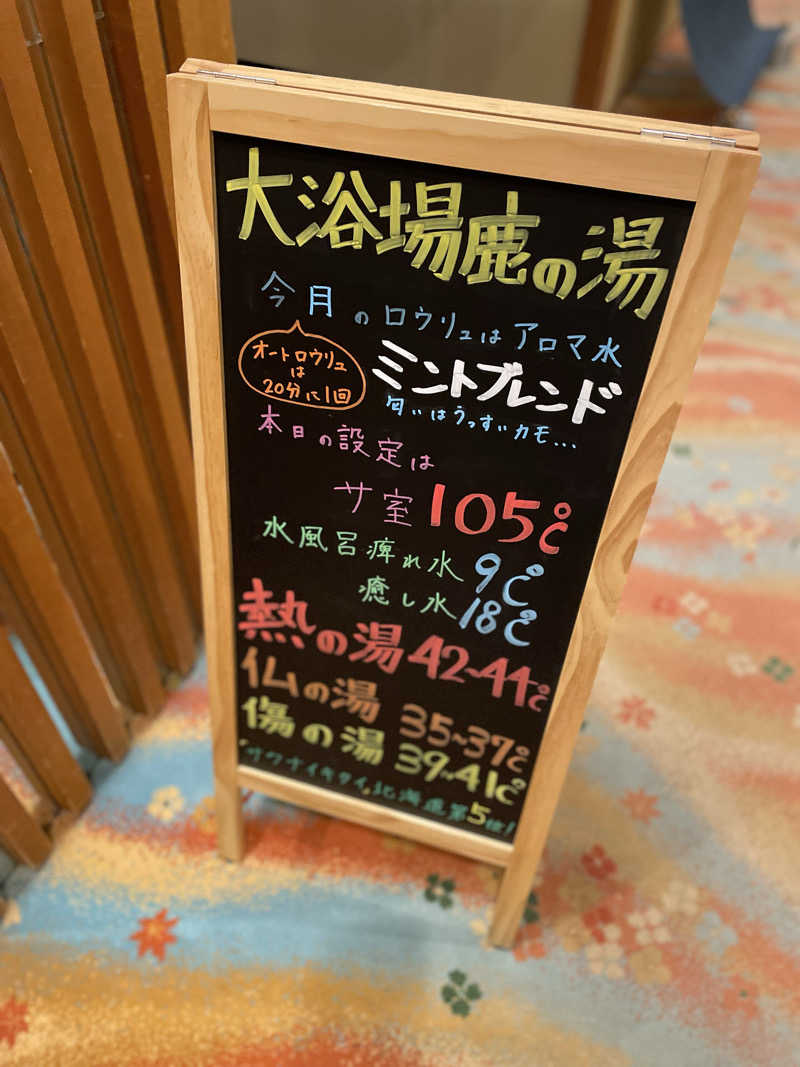 大浴場鹿の湯
今月のロウリュはアロマ水
オートロウリュ
は
20分に1回
ミントブレンド
匂いはうっすいカモ...
本日の設定は
サ室105℃
水風呂痺れ水9℃
癒し水18℃
熱の湯42~44℃
仏の湯 35~37℃
傷の湯 39~41℃
"サウナイキタイ"北海道第5位!